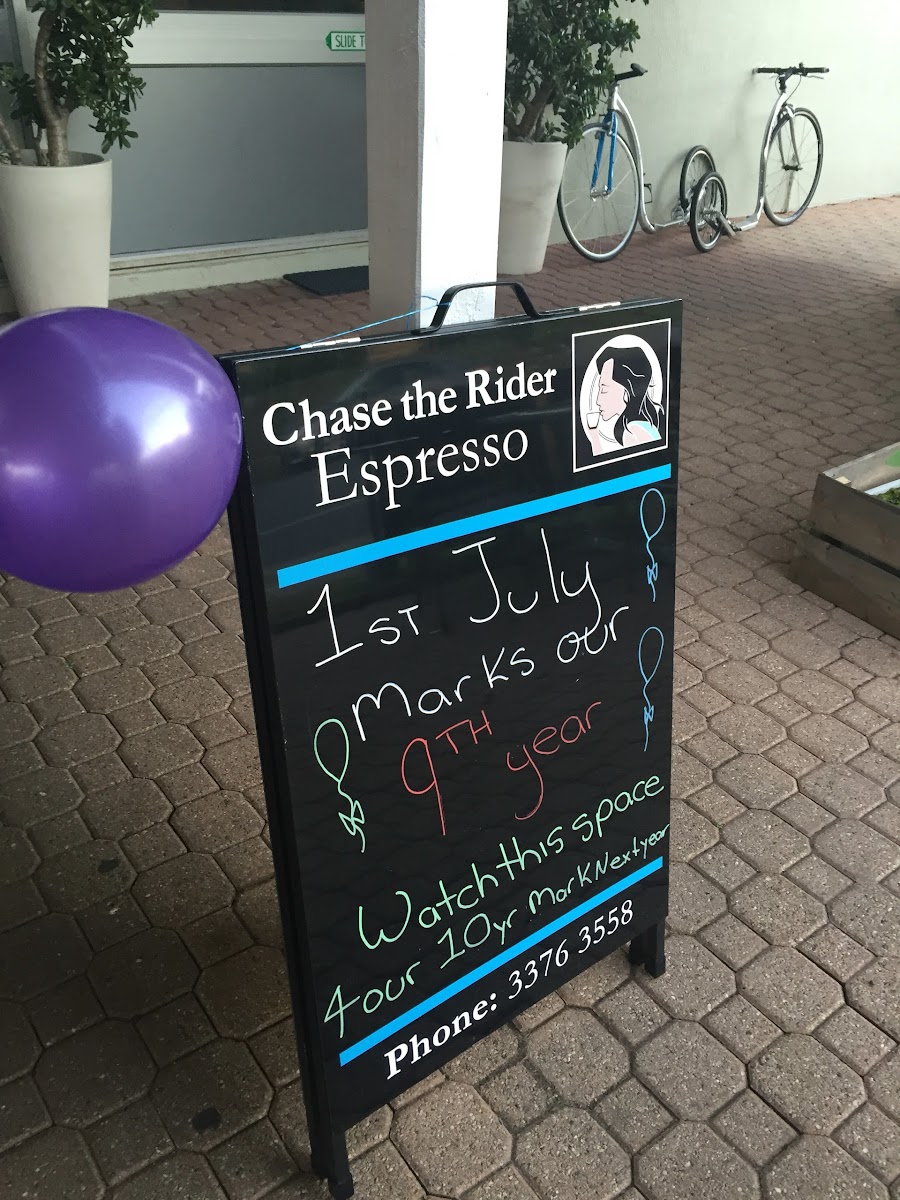 SLIDE T
Chase the Rider
Espresso
1ST July
Marks our
9TH year
Watch this space
4 our 10yr Mark Next year
Phone: 3376 3558